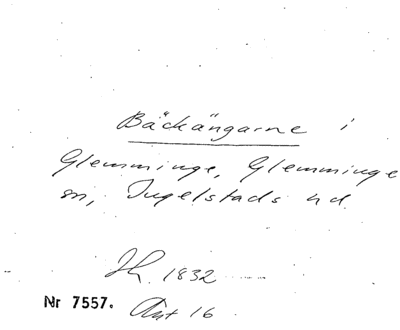 Bäckängarne i
Glemminge, Glemminge
sn, Ingelstads hd.
1832
Nr 7557. Akt 16